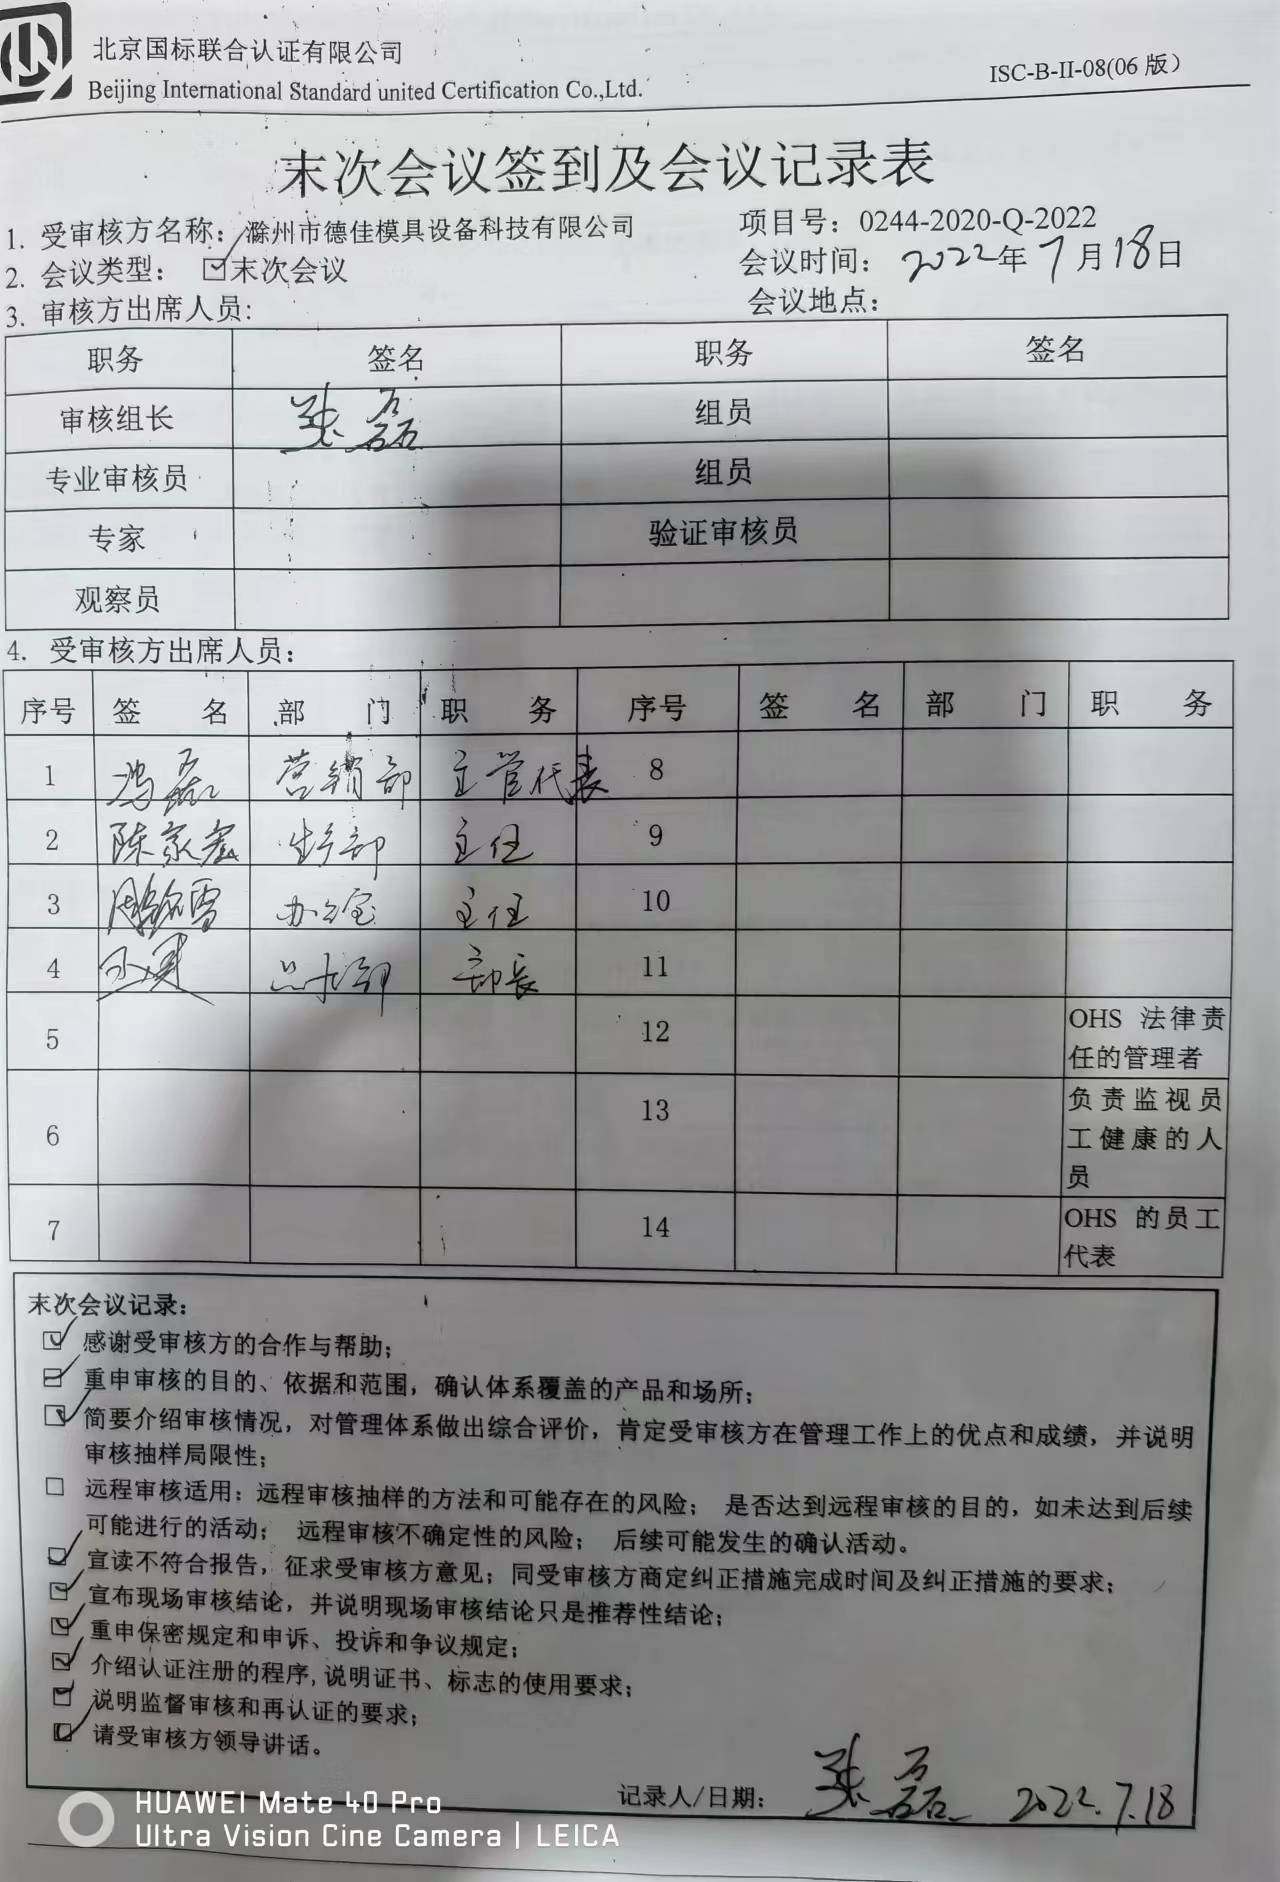 北京国标联合认证有限公司
Beijing International Standard united Certification Co.,Ltd.
ISC-B-II-08(06 版)
末次会议签到及会议记录表
1. 受审核方名称：滁州市德佳模具设备科技有限公司 项目号：0244-2020-Q-2022
2. 会议类型： ☑末次会议 会议时间： 2022年 7月18日
3. 审核方出席人员: 会议地点：
职务 签名 职务 签名
审核组长 张磊 组员
专业审核员 组员
专家 验证审核员
观察员
4. 受审核方出席人员：
序号 签 名 部 门 职 务 序号 签 名 部 门 职 务
1 冯磊 营销部 主管代表 8
2 陈家宏 生产部 主任 9
3 周 雪 办公室 主任 10
4 部 部长 11
5 12 OHS 法律责任的管理者
6 13 负责监视员工健康的人员
7 14 OHS 的员工代表
末次会议记录：
☑ 感谢受审核方的合作与帮助；
☑ 重申审核的目的、依据和范围，确认体系覆盖的产品和场所；
☑ 简要介绍审核情况，对管理体系做出综合评价，肯定受审核方在管理工作上的优点和成绩，并说明
审核抽样局限性；
□ 远程审核适用：远程审核抽样的方法和可能存在的风险； 是否达到远程审核的目的，如未达到后续
可能进行的活动； 远程审核不确定性的风险； 后续可能发生的确认活动。
☑ 宣读不符合报告，征求受审核方意见；同受审核方商定纠正措施完成时间及纠正措施的要求；
☑ 宣布现场审核结论，并说明现场审核结论只是推荐性结论；
☑ 重申保密规定和申诉、投诉和争议规定；
☑ 介绍认证注册的程序,说明证书、标志的使用要求；
☑ 说明监督审核和再认证的要求；
☑ 请受审核方领导讲话。
记录人/日期： 张磊 2022.7.18
HUAWEI Mate 40 Pro
Ultra Vision Cine Camera | LEICA